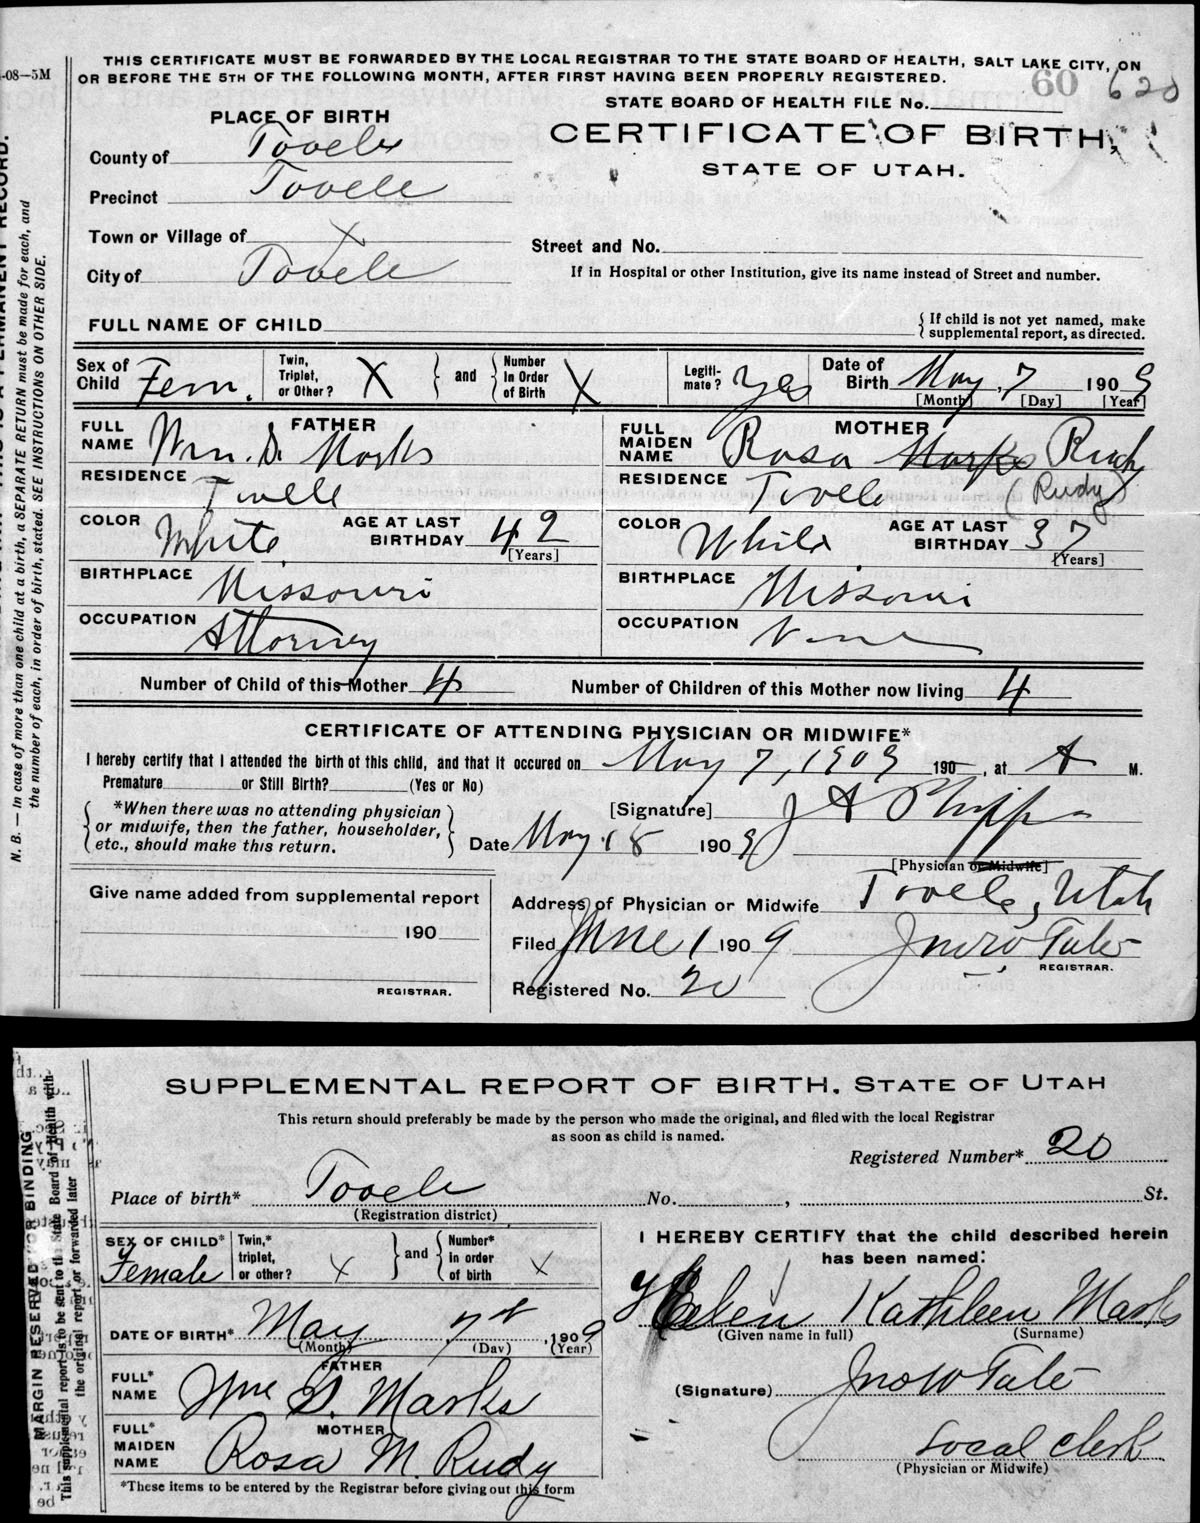 -08-5M
THIS CERTIFICATE MUST BE FORWARDED BY THE LOCAL REGISTRAR TO THE STATE BOARD OF HEALTH, SALT LAKE CITY, ON
OR BEFORE THE 5TH OF THE FOLLOWING MONTH, AFTER FIRST HAVING BEEN PROPERLY REGISTERED.
60 620
STATE BOARD OF HEALTH FILE No.
PLACE OF BIRTH
CERTIFICATE OF BIRTH,
STATE OF UTAH.
County of Tooele
Precinct Tooele
Town or Village of X
Street and No.
City of Tooele
If in Hospital or other Institution, give its name instead of Street and number.
FULL NAME OF CHILD
{If child is not yet named, make
supplemental report, as directed.
Sex of Child Fem. Twin, Triplet, or Other? X } and { Number In Order of Birth X Legiti-mate? Yes Date of Birth May, 7 1909
[Month] [Day] [Year]
FATHER
FULL NAME Wm. D. Marks
MOTHER
FULL MAIDEN NAME Rosa Marks Rudy
RESIDENCE Tooele
RESIDENCE Tooele (Rudy)
COLOR White AGE AT LAST BIRTHDAY 42 [Years]
COLOR White AGE AT LAST BIRTHDAY 37 [Years]
BIRTHPLACE Missouri
BIRTHPLACE Missouri
OCCUPATION Attorney
OCCUPATION None
Number of Child of this Mother 4 Number of Children of this Mother now living 4
CERTIFICATE OF ATTENDING PHYSICIAN OR MIDWIFE*
I hereby certify that I attended the birth of this child, and that it occured on May 7, 1909 190 , at A M.
Premature or Still Birth? (Yes or No)
{*When there was no attending physician
or midwife, then the father, householder,
etc., should make this return.}
[Signature] J A Phipps
Date May 18 1909
[Physician or Midwife]
Give name added from supplemental report
190
REGISTRAR.
Address of Physician or Midwife Tooele, Utah
Filed June 1 1909 Jno W Tate
REGISTRAR.
Registered No. 20
PERMANENT RECORD.
N. B. — In case of more than one child at a birth, a SEPARATE RETURN must be made for each, and
the number of each, in order of birth, stated. SEE INSTRUCTIONS ON OTHER SIDE.
SUPPLEMENTAL REPORT OF BIRTH. STATE OF UTAH
This return should preferably be made by the person who made the original, and filed with the local Registrar
as soon as child is named.
Registered Number* 20
Place of birth* Tooele No. , St.
(Registration district)
SEX OF CHILD* Female Twin,* triplet, or other? X } and { Number* In order of birth X
DATE OF BIRTH* May 7th, 1909
(Month) (Day) (Year)
FATHER
FULL* NAME Wm D. Marks
MOTHER
FULL* MAIDEN NAME Rosa M. Rudy
*These items to be entered by the Registrar before giving out this form
I HEREBY CERTIFY that the child described herein
has been named:
Helen Kathleen Marks
(Given name in full) (Surname)
(Signature) Jno W Tate
Local clerk
(Physician or Midwife)
MARGIN RESERVED FOR BINDING
This supplemental report is to be sent to the State Board of Health with
the original report or forwarded later